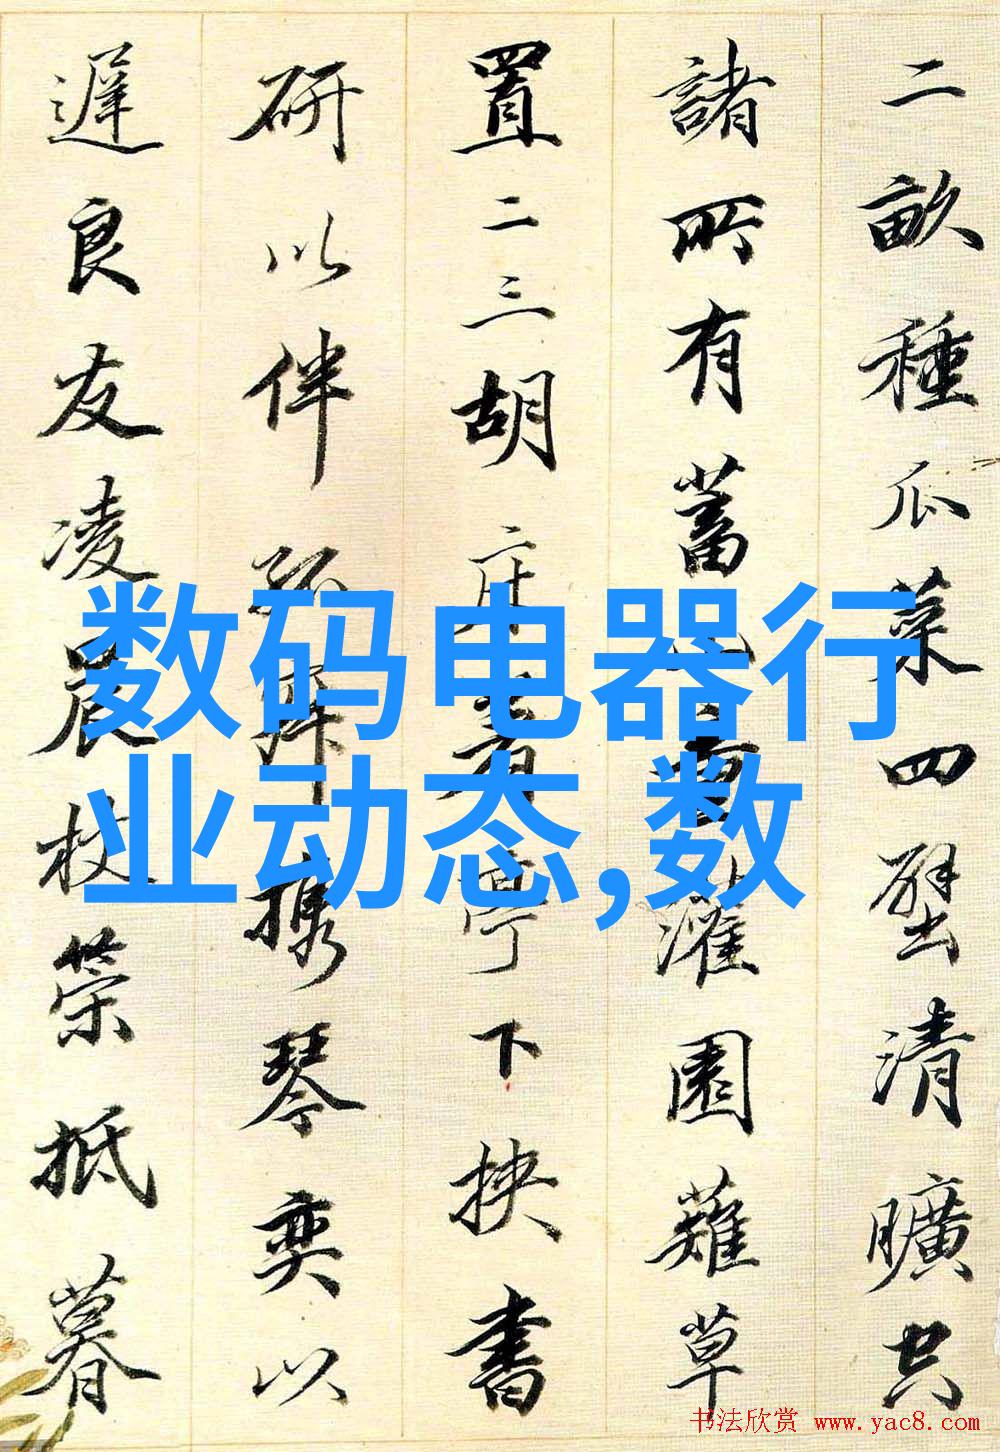 二畝種瓜菜四壁清曠空
諸所有蓄灌園薙草
置二三胡床着亭下挾書
研以伴孤寂攜琴奕以
遲良友凌晨杖策抵暮
数码电器行
业动态,数
书法欣赏 www.yac8.com